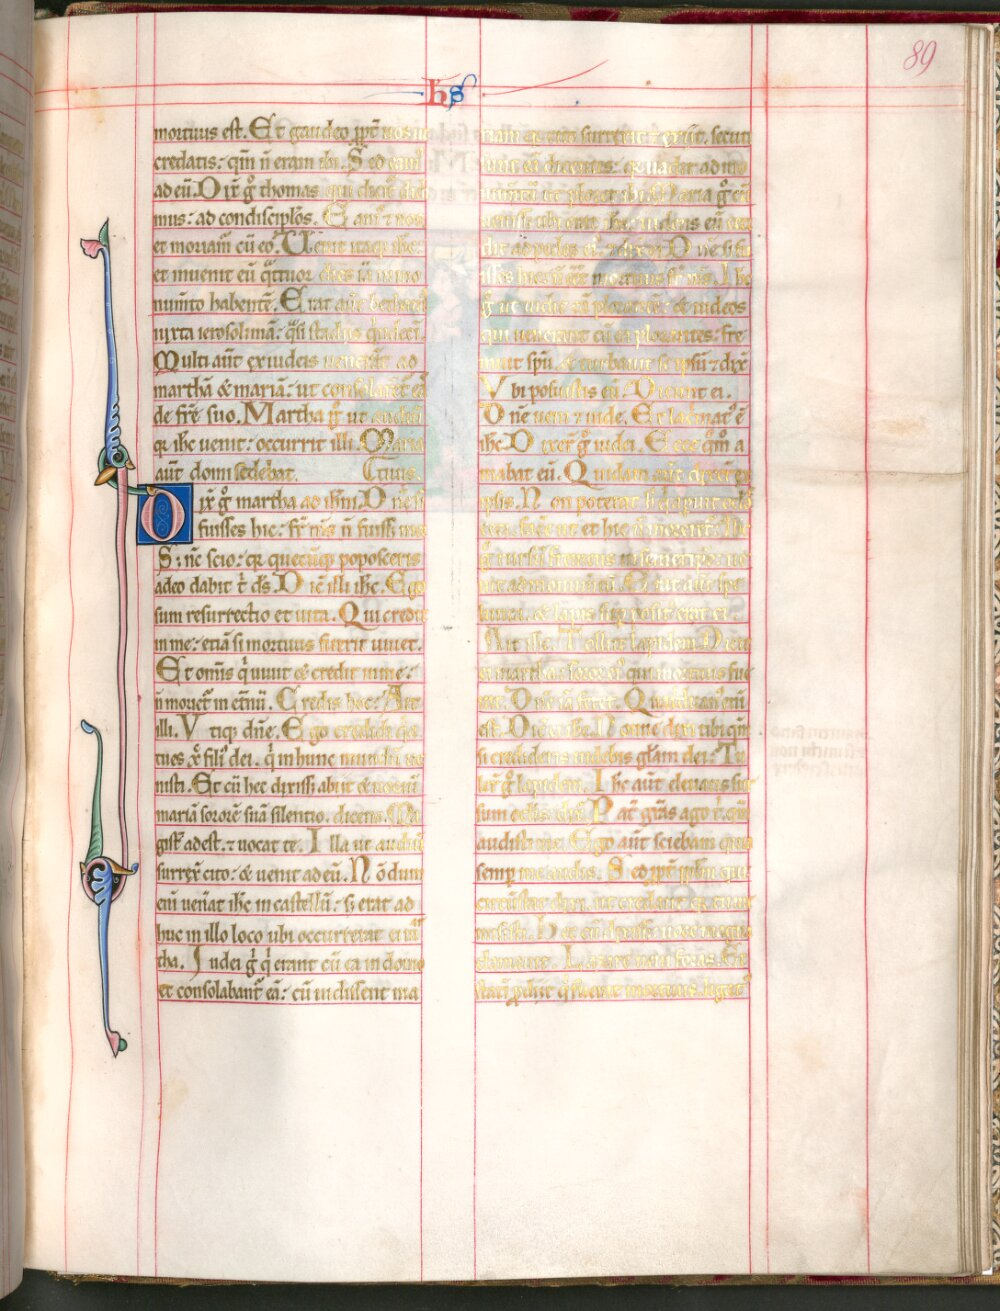 89
hs
mortuus est. Et gaudeo ppt̄ uos ut
credatis: qm̄ n̄ eram ibi. Sed eam̄
ad eū. Dix̄ gͦ thomas qui dicit̄ didi
mus: ad condisciplōs. Eam̄ & nos
et moriam̄ cū eo. Uenit itaqꝫ ihc:
et inuenit eū qͣttuor dies iā in mo
num̄to habentē. Erat aūt bethania
iuxta ierosolimā: qͣsi stadiis quīdeci.
Multi aūt ex iudeis uenerāt ad
marthā & mariā: ut consolarēt̄ eā
de fr̄e suo. Martha gͦ ut audiuit
qꝫ ihc uenit: occurrit illi. Maria
aūt domi sedebat. tuus.
Dix̄ gͦ martha ad ihm̄. Dn̄e si
fuisses hic: fr̄ m̄s n̄ fuiss; mo
S; nc̄ scio: qꝫ quecūqꝫ poposceris
a deo dabit t̄ ds̄. Dic̄ illi ihc. Ego
sum resurrectio et uita. Qui credit
in me: etiā si mortuus fuerit uiuet.
Et omīs qͥ uiuit & credit in me:
n̄ moriet̄ in etn̄ū. Credis hoc: Ait
illi. Vtiqꝫ dn̄e. Ego credidi qꝫ
tu es x̄ filiꝰ dei. qͥ in hunc mundū ue
nisti. Et cū hec dixiss; abiit & uocauit
mariā sororē suā silentio. dicens. Ma
gist̄ adest. & uocat te. Illa ut audiuit
surrex̄ cito: & uenit ad eū. Nōdum
eni uen̄at ihc in castellū: s; erat ad
huc in illo loco ubi occurrerat ei mͣ
tha. Iudei gͦ qͥ erant cū ea in domo
et consolabant̄ eā: cū uidissent ma
riam qꝫ cito surrexit & exiit. secuti
sunt eā dicentes: quia uadit ad mo
num̄tū ut ploret ibi. Maria gͦ cū
uenisset ubi erat ihc: uidens eū ceci
dit ad pedes eiꝰ & dix̄ ei. Dn̄e si fu
isses hic: n̄ eēt mortuus fr̄ m̄s. Ihc
gͦ ut uidit eā plorantē: & iudeos
qui uenerant cū ea plorantes: fre
muit spū. & turbauit se ipsū: & dix̄
Vbi posuistis eū. Dicunt ei.
Dn̄e ueni & uide. Et lacrimatꝰ ē
ihc. Dixer̄ gͦ iudei. Ecce qͦm̄ a
mabat eū. Quidam aūt dixer̄ ex
ipsis. Non poterat
et hic n̄ moreret̄.
Ait ihc. Tollite lapidem. Dicit
ei martha: soror eiꝰ qui mortuus fue
rat. Dn̄e iā fetet. Quadriduanꝰ enī
est. Dic̄ ei ihc. Nonne dixi tibi qm̄
si credideris uidebis glām dei: Tu
ler̄ gͦ lapidem. Ihc aūt eleuatis sur
sum oculis dix̄. Pat̄ grās ago t̄. qm̄
audisti me. Ego aūt sciebam quia
semp̄ me audis. Sed ppt̄ pplm̄ qui
circūstat dixi. ut credant qꝫ tu me
misisti. Hec cū dixiss; uoce magna
clamauit. Lazare ueni foras. Et
statī pdiit qͥ fuerat mortuus. ligatꝰ